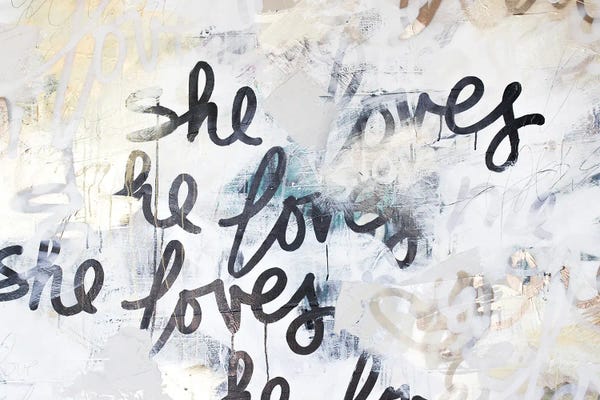 she loves
he loves
she loves
he lov